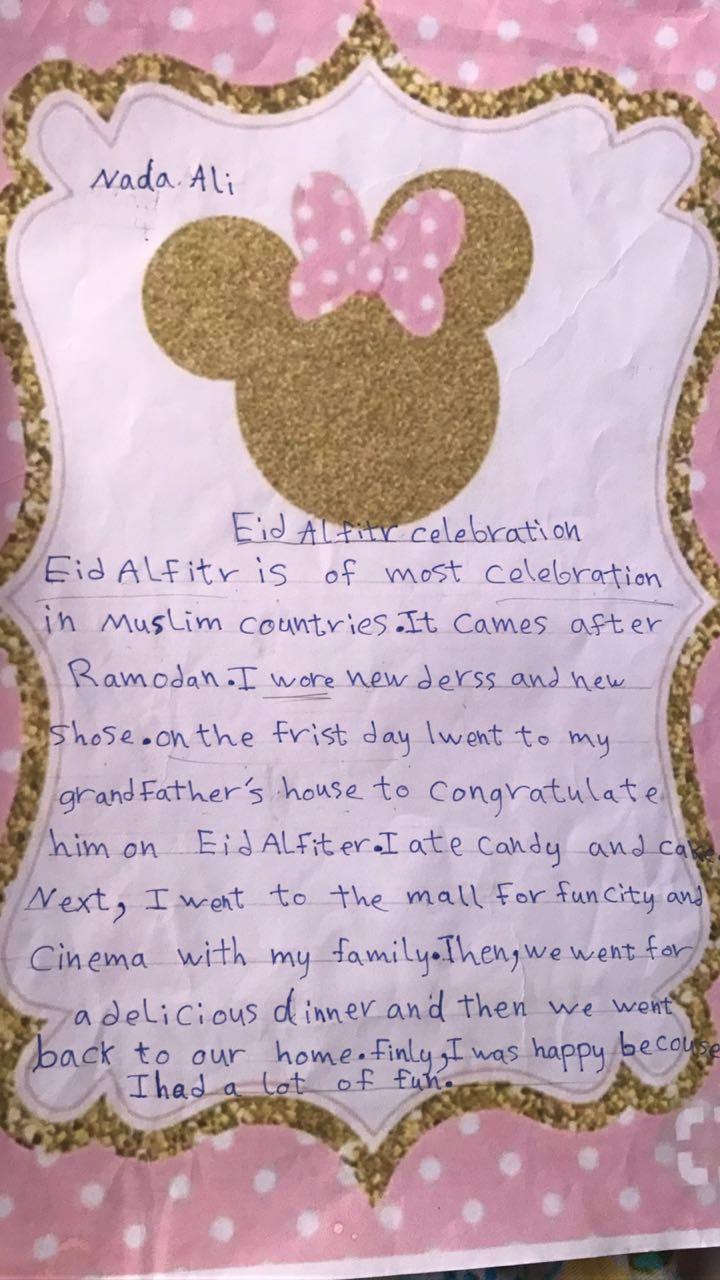 Nada Ali
Eid Alfitr celebration
Eid Alfitr is of most celebration
in Muslim countries. It cames after
Ramodan. I wore new derss and new
shose. on the frist day I went to my
grandfather's house to congratulate
him on Eid Alfiter. I ate candy and cake.
Next, I went to the mall for funcity and
Cinema with my family. Then, we went for
a delicious dinner and then we went
back to our home. finly, I was happy becouse
I had a lot of fun.